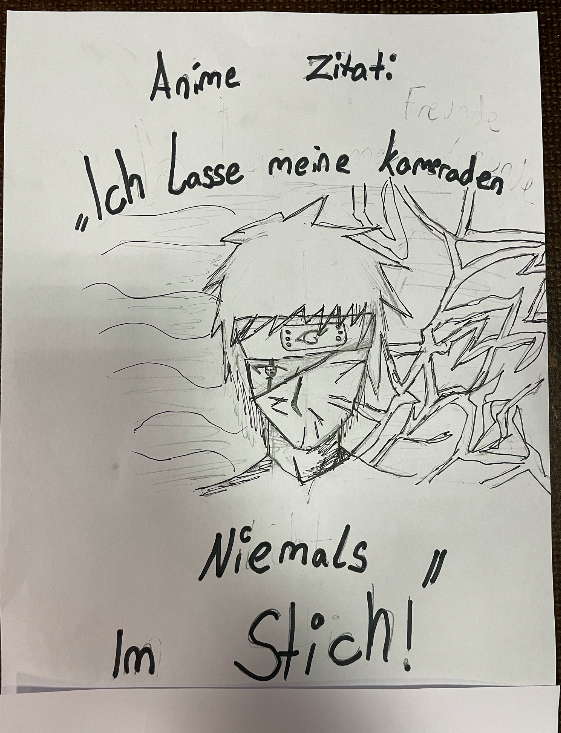 Anime Zitat:
Freunde
„Ich Lasse meine kameraden
Niemals "
Im Stich!